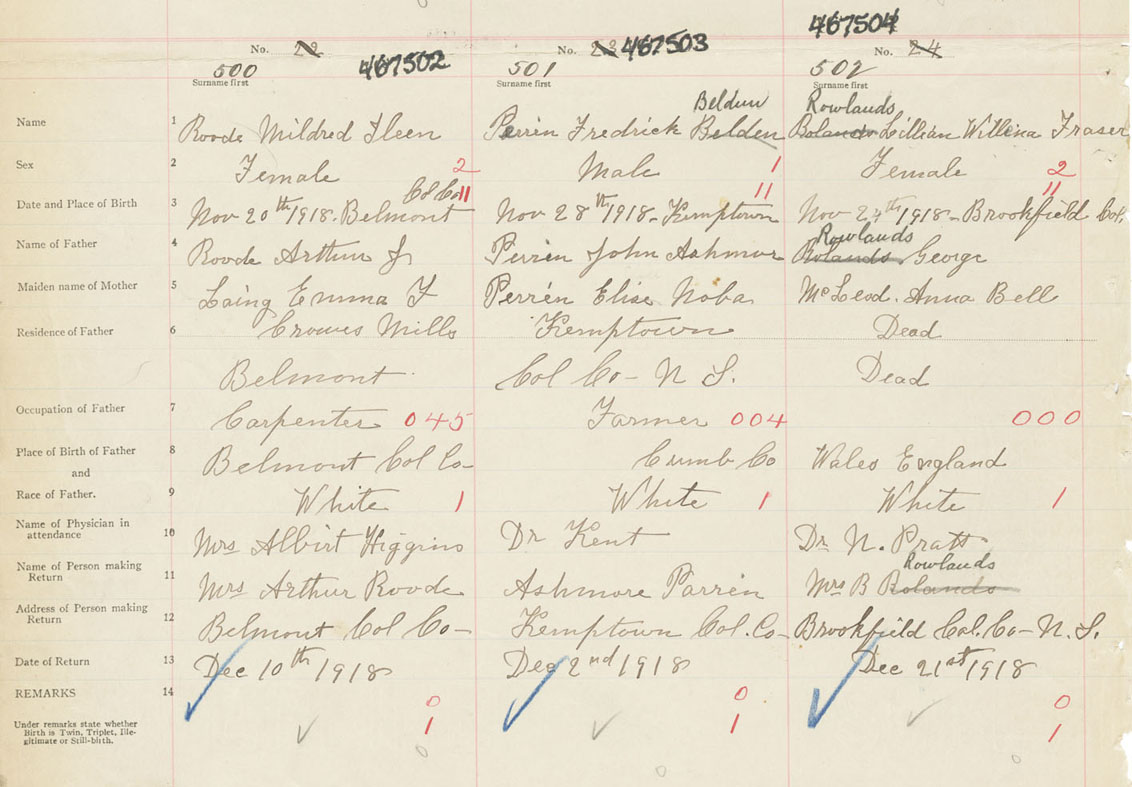 467504
No. 22 467502 No. 23 467503 No. 24
500 501 502
Surname first Surname first Surname first
Beldun Rowlands
Name 1 Roode Mildred Ileen Perrin Fredrick Belden Rolands Lillian Willena Fraser
Sex 2 Female 2 Male 1 Female 2
Col Co 11 11 11
Date and Place of Birth 3 Nov 20th 1918. Belmont Nov 28th 1918 - Kemptown Nov 24th 1918 - Brookfield Col.
Rowlands
Name of Father 4 Roode Arthur J Perrin John Ashmor Rolands George
Maiden name of Mother 5 Laing Emma F Perrin Elise Noba McLeod. Anna Bell
Residence of Father 6 Crowes Mills Kemptown Dead
Belmont Col Co - N S. Dead
Occupation of Father 7 Carpenter 045 Farmer 004 000
Place of Birth of Father 8 Belmont Col Co - Cumb Co Wales England
and
Race of Father. 9 White 1 White 1 White 1
Name of Physician in
attendance 10 Mrs Albirt Higgins Dr Kent Dr N. Pratt
Rowlands
Name of Person making
Return 11 Mrs Arthur Roode Ashmore Parrin Mrs B Rolands
Address of Person making
Return 12 Belmont Col Co - Kemptown Col. Co - Brookfield Col. Co - N. S.
Date of Return 13 Dec 10th 1918 Dec 2nd 1918 Dec 21st 1918
REMARKS 14 0 0 0
Under remarks state whether
Birth is Twin, Triplet, Ille-
gitimate or Still-birth. 1 1 1